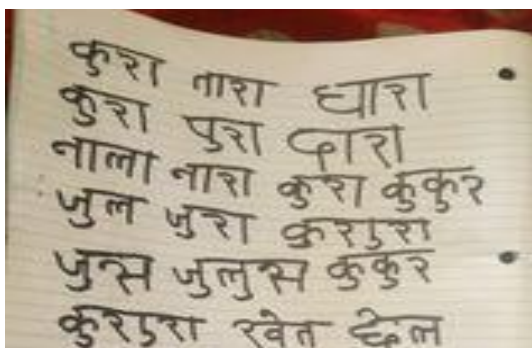 कुरा तारा धारा
कुरा पुरा दारा
नाला नारा कुरा कुकुर
जुल जुरा कुरारा
जुन्स जुलुस कुकुर
कुरारा खेत छेल